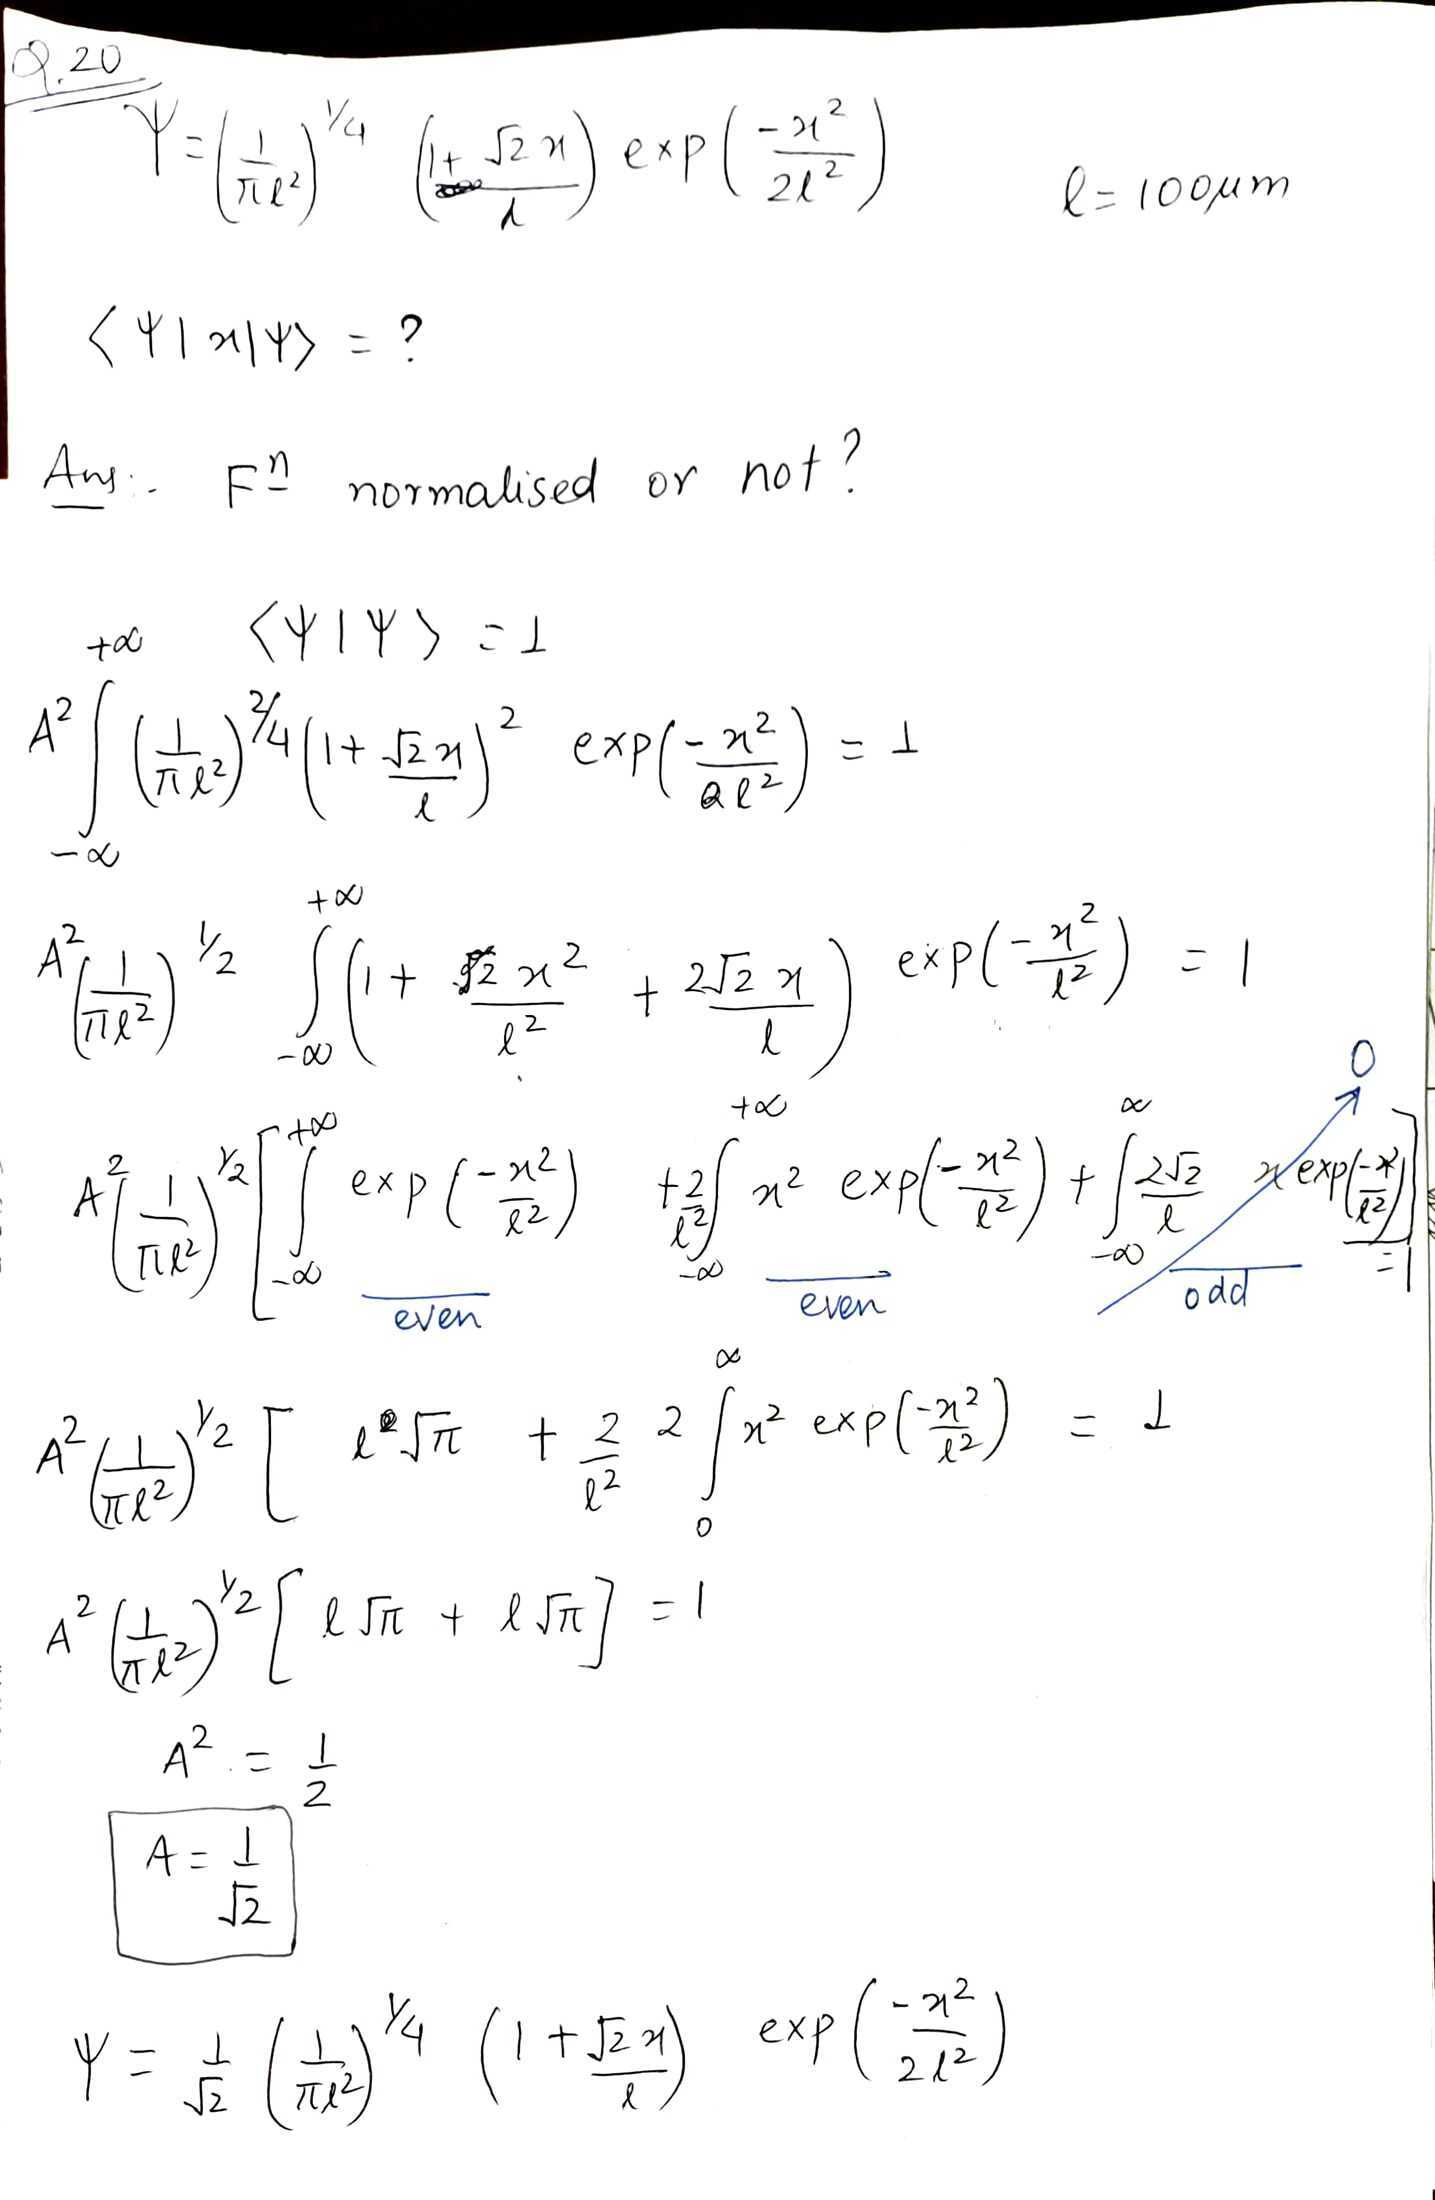 Q.20
Ψ = (1/πl²)^1/4 (1 + √2 x/l) exp(-x²/2l²) l = 100μm
⟨Ψ|x|Ψ⟩ = ?
Ans:- Fⁿ normalised or not?
⟨Ψ|Ψ⟩ = 1
A² ∫_{-∞}^{+∞} (1/πl²)^2/4 (1 + √2 x/l)² exp(-x²/2l²) = 1
A² (1/πl²)^1/2 ∫_{-∞}^{+∞} (1 + 2x²/l² + 2√2 x/l) exp(-x²/l²) = 1
A² (1/πl²)^1/2 [ ∫_{-∞}^{+∞} exp(-x²/l²) + 2/l² ∫_{-∞}^{+∞} x² exp(-x²/l²) + ∫_{-∞}^{∞} 2√2/l x exp(-x²/l²) ] = 1 0
even even odd
A² (1/πl²)^1/2 [ l√π + 2/l² 2 ∫_{0}^{∞} x² exp(-x²/l²) = 1
A² (1/πl²)^1/2 [ l√π + l√π ] = 1
A² = 1/2
A = 1/√2
Ψ = 1/√2 (1/πl²)^1/4 (1 + √2 x/l) exp(-x²/2l²)